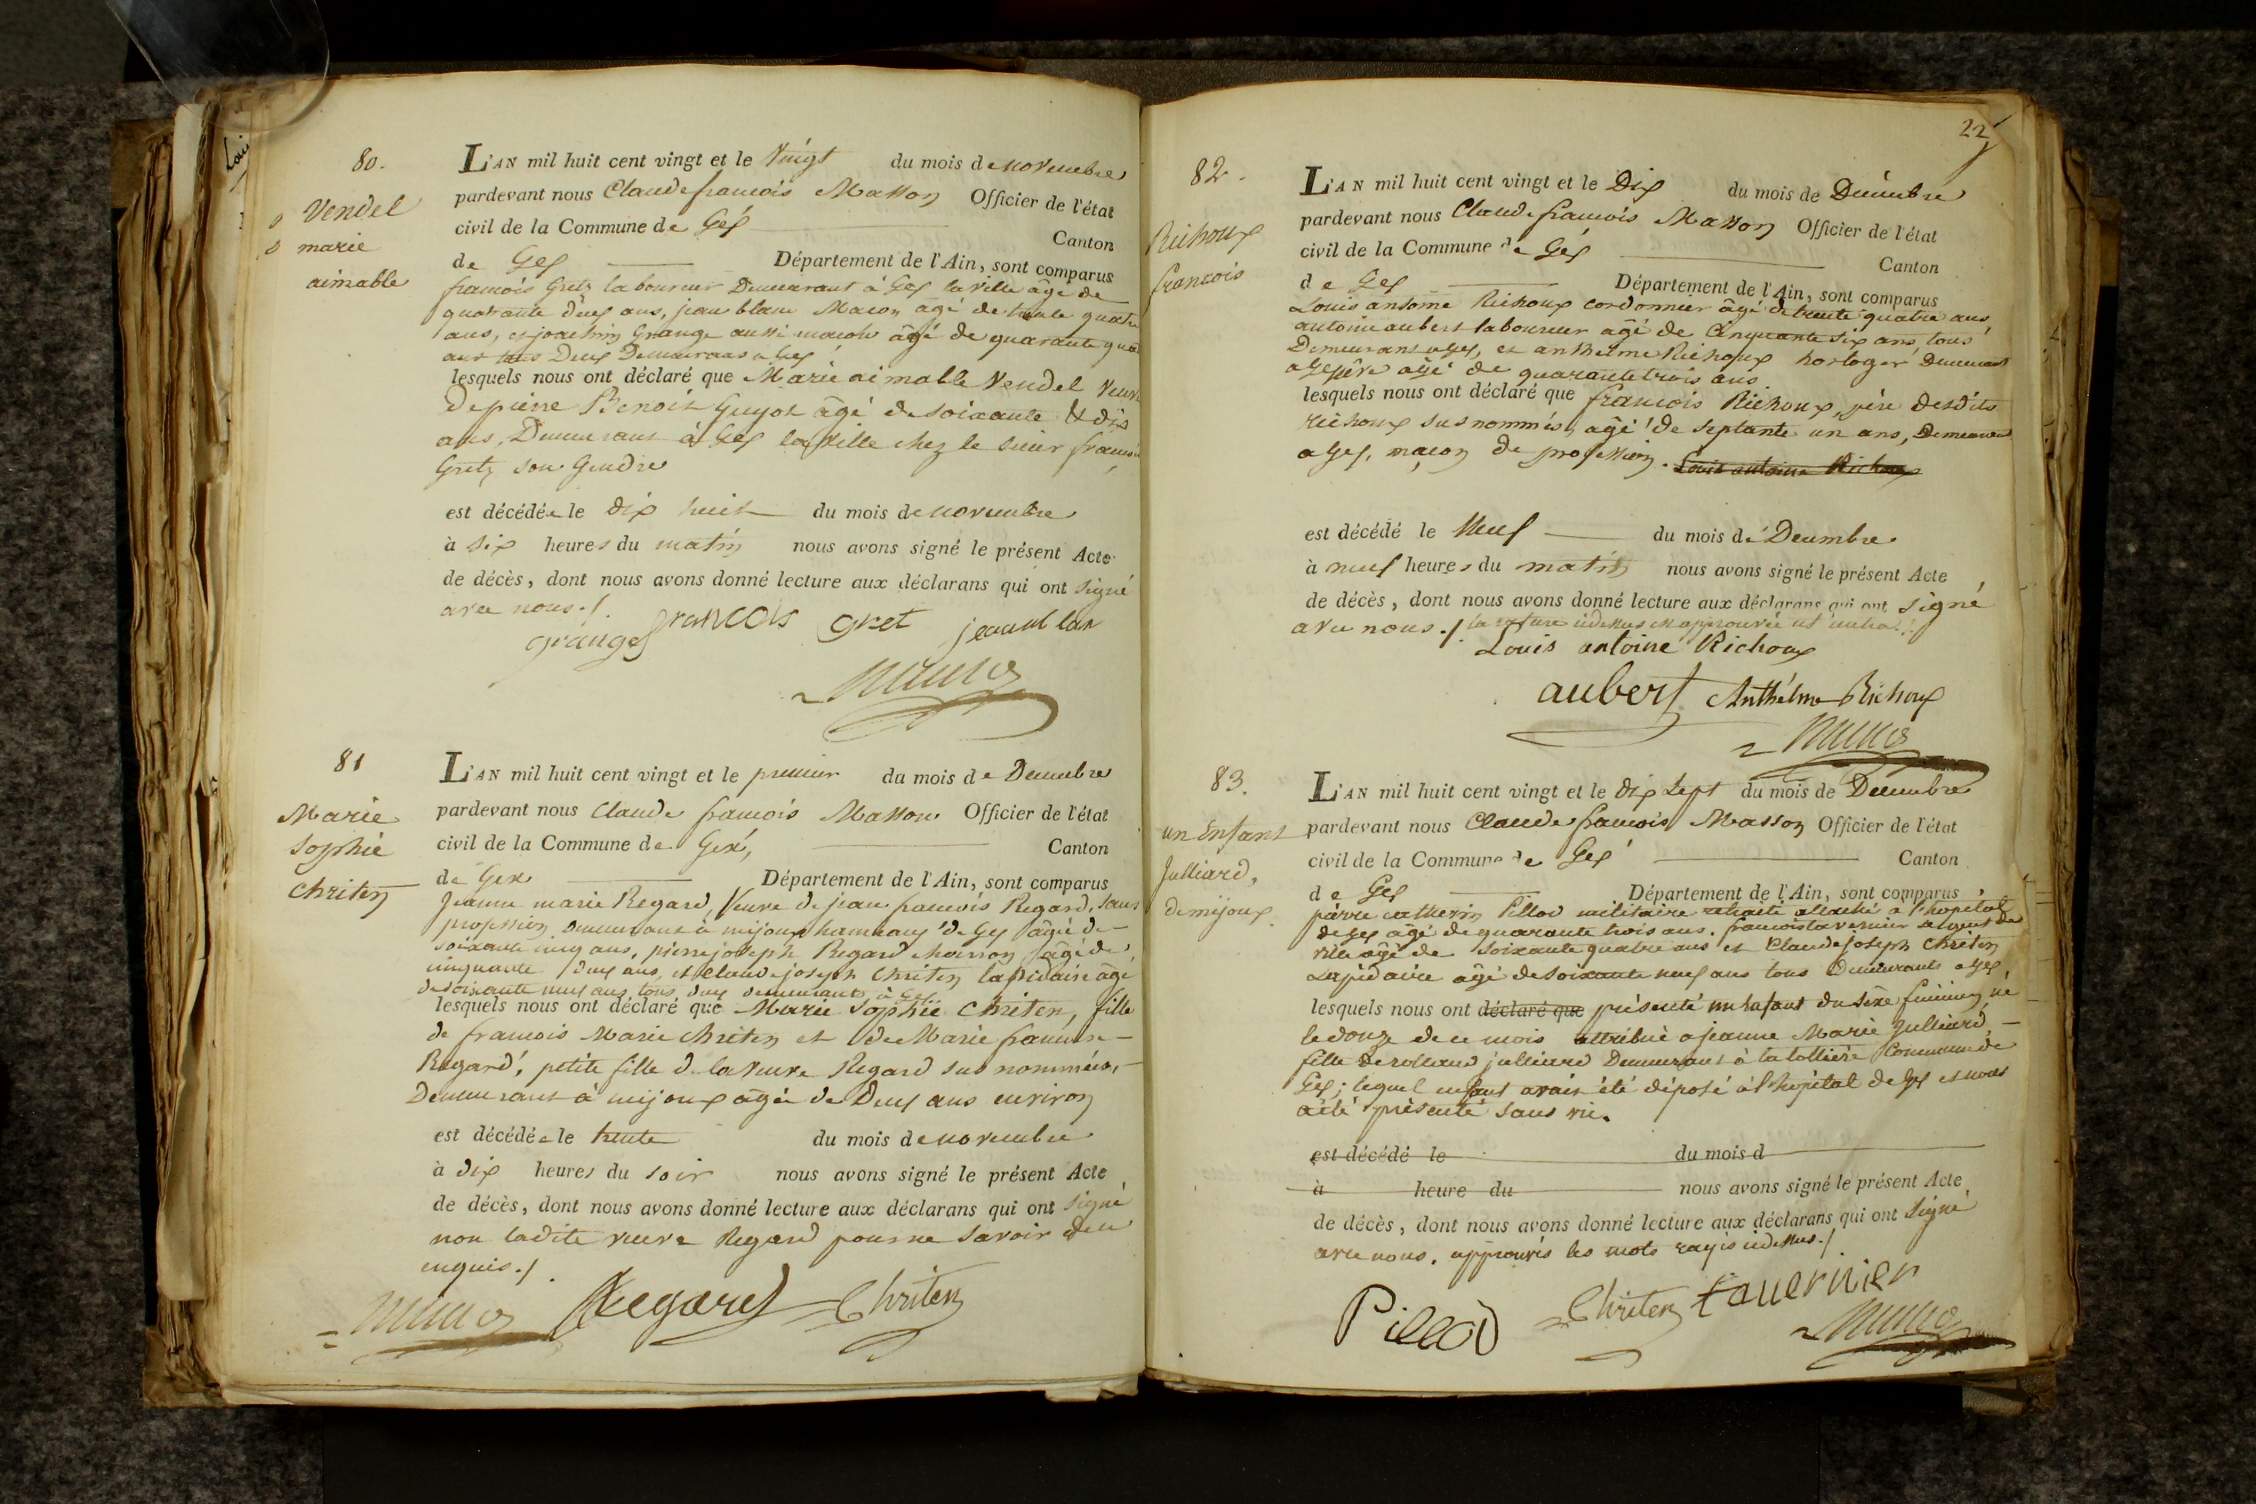 80.
Vendel
marie
aimable
L'AN mil huit cent vingt et le Vingt du mois de novembre
pardevant nous Claude francois Masson Officier de l'état
civil de la Commune de Gex
Canton
de Gex Département de l'Ain, sont comparus
francois Gretz laboureur Demeurant à Gex la ville âgé de
quarante deux ans, jean blanc Macon âgé de trente quatre
ans, et joachim Grange aussi macon âgé de quarante quatre
ans tous Deux Demeurans a Gex
lesquels nous ont déclaré que Marie aimable Vendel Veuve
De pierre Benoit Guyot âgé de soixante & dix
ans, Demeurant à Gex la ville chez le sieur francois
Gretz son Gendre
est décédée le dix huit du mois de novembre
à six heures du matin nous avons signé le présent Acte
de décès, dont nous avons donné lecture aux déclarans qui ont signé
avec nous ./.
grange francois gret jean blan
81
Marie
Sophie
Chriten
L'AN mil huit cent vingt et le premier du mois de Decembre
pardevant nous Claude francois Masson Officier de l'état
civil de la Commune de Gex,
Canton
de Gex Département de l'Ain, sont comparus
Jeanne marie Regard, Veuve de jean francois Regard, sans
profession demeurant à mijoux hameaux de Gex âgée de
soixante cinq ans, pierre joseph Regard charron, âgé de
cinquante deux ans, et Claude joseph Chriten lapidaire âgé
de soixante neuf ans tous deux demeurants à Gex
lesquels nous ont déclaré que Marie Sophie Chriten, fille
de francois Marie Chriten et de Marie francoise
Regard, petite fille de la Veuve Regard sus nommée,
Demeurant à mijoux âgée de Deux ans environ
est décédée le trente du mois de novembre
à dix heures du soir nous avons signé le présent Acte
de décès, dont nous avons donné lecture aux déclarans qui ont signé
non ladite veuve Regard pour ne savoir de ce
enquis ./.
Regard Chriten
22
82.
Richoux
francois
L'AN mil huit cent vingt et le Dix du mois de Decembre
pardevant nous Claude francois Masson Officier de l'état
civil de la Commune de Gex
Canton
de Gex Département de l'Ain, sont comparus
Louis antoine Richoux cordonnier âgé de trente quatre ans,
antoine aubert laboureur âgé de Cinquante six ans tous
Demeurans a Gex, et anthelme Richoux horloger Demeurant
a Genève âgé de quarante trois ans.
lesquels nous ont déclaré que francois Richoux, père desdits
richoux sus nommés, âgé de septante un ans, Demeurant
a Gex, maçon de profession. Louis antoine Richoux
est décédé le Neuf du mois de Decembre
à neuf heures du matin nous avons signé le présent Acte
de décès, dont nous avons donné lecture aux déclarans qui ont signé
avec nous ./. la rature cidessus est approuvée
Louis antoine Richoux
aubert Anthélme Richoux
83.
un Enfant
Julliard,
de mijoux
L'AN mil huit cent vingt et le dix sept du mois de Decembre
pardevant nous Claude francois Masson Officier de l'état
civil de la Commune de Gex
Canton
de Gex Département de l'Ain, sont comparus
pierre catherin Pillod militaire retraité attaché à l'hopital
de Gex âgé de quarante trois ans. francois tavernier sergent de
ville âgé de soixante quatre ans et Claude joseph Chriten
Lapidaire âgé de soixante neuf ans tous Demeurants a Gex,
lesquels nous ont déclaré que présenté un Enfant du sèxe feminin né
le douze de ce mois attribué a jeanne Marie Julliard,
fille de rolland julliard Demeurant à la tollière Commune de
Gex; lequel enfant avait été déposé à l'hopital de Gex et nous
a été présenté sans vie.
est décédé le du mois d
à heure du nous avons signé le présent Acte
de décès, dont nous avons donné lecture aux déclarans qui ont signé
avec nous. approuvés les mots rayés cidessus ./.
Pillod Chriten tavernier